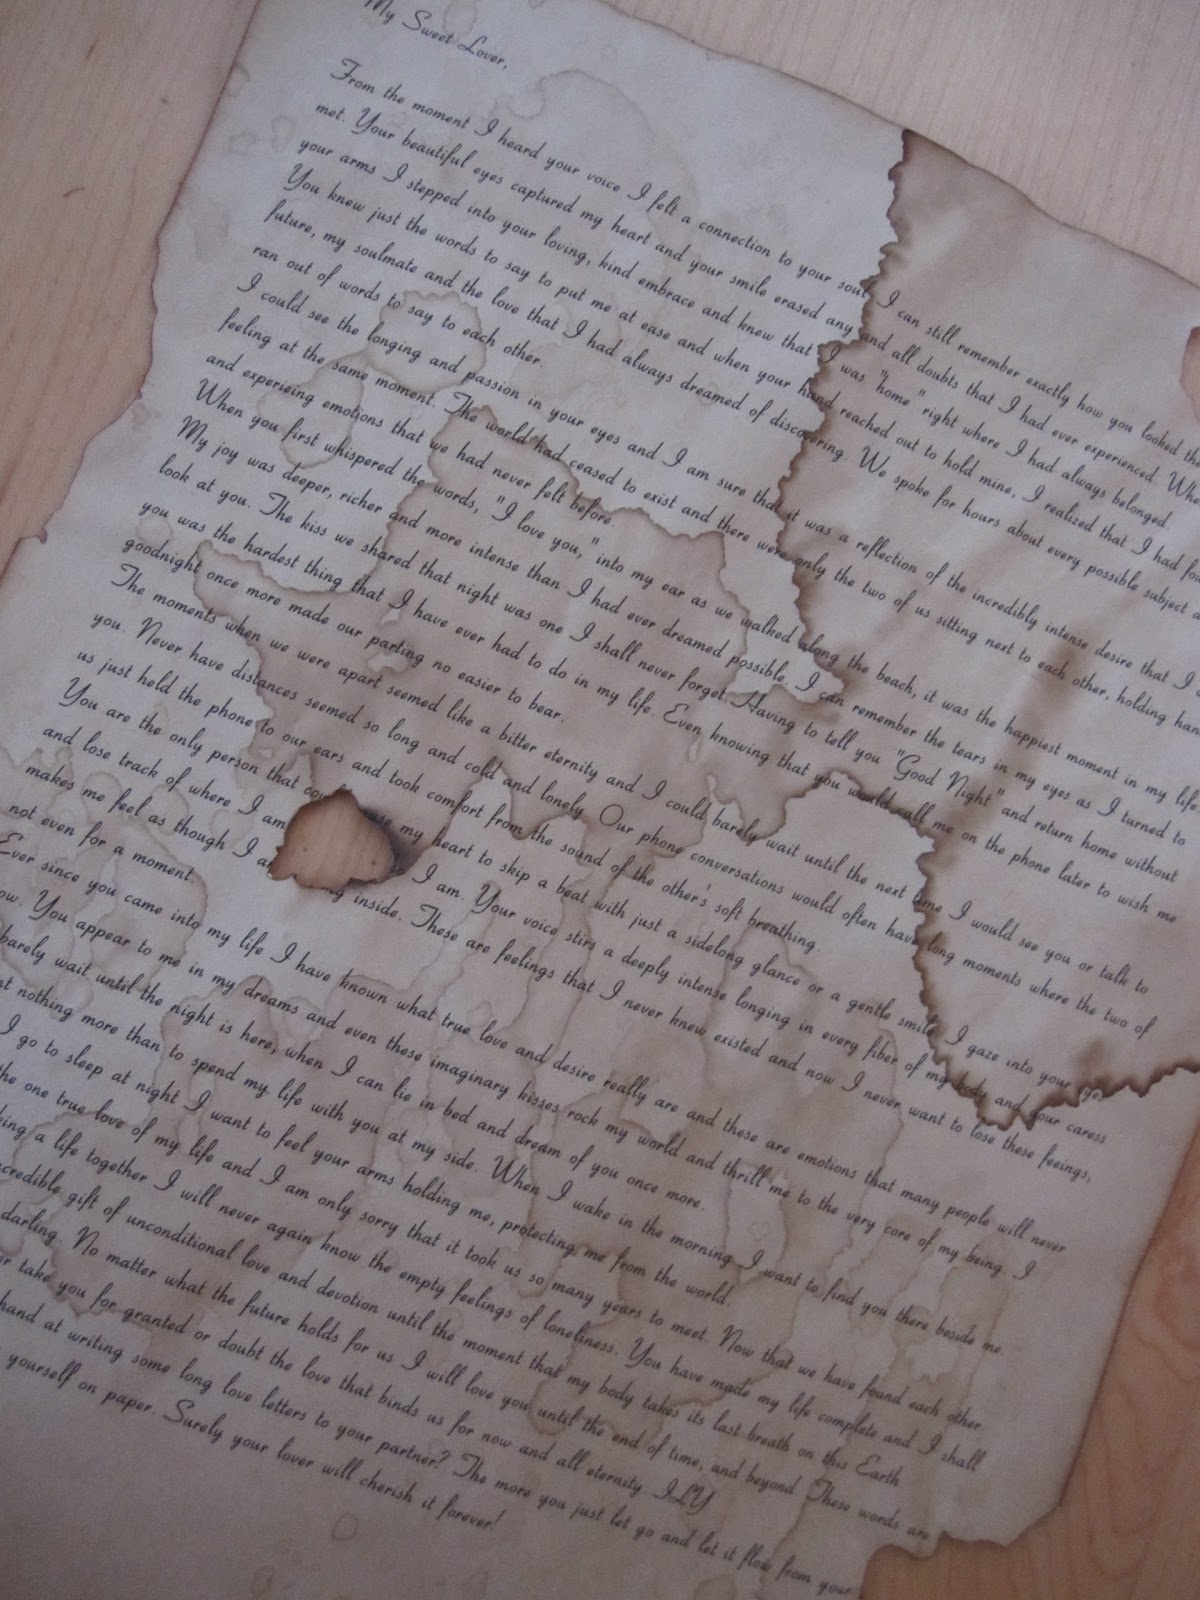 My Sweet Lover,
From the moment I heard your voice I felt a connection to your soul. I can still remember exactly how you looked the
met. Your beautiful eyes captured my heart and your smile erased any and all doubts that I had ever experienced. Whe
your arms I stepped into your loving, kind embrace and knew that I was "home" right where I had always belonged.
You knew just the words to say to put me at ease and when your hand reached out to hold mine, I realized that I had fou
future, my soulmate and the love that I had always dreamed of discovering. We spoke for hours about every possible subject a
ran out of words to say to each other.
I could see the longing and passion in your eyes and I am sure that it was a reflection of the incredibly intense desire that I w
feeling at the same moment. The world had ceased to exist and there were only the two of us sitting next to each other, holding han
and experieing emotions that we had never felt before.
When you first whispered the words, "I love you," into my ear as we walked along the beach, it was the happiest moment in my life
My joy was deeper, richer and more intense than I had ever dreamed possible. I can remember the tears in my eyes as I turned to
look at you. The kiss we shared that night was one I shall never forget. Having to tell you "Good Night" and return home without
you was the hardest thing that I have ever had to do in my life. Even knowing that you would call me on the phone later to wish me
goodnight once more made our parting no easier to bear.
The moments when we were apart seemed like a bitter eternity and I could barely wait until the next time I would see you or talk to
you. Never have distances seemed so long and cold and lonely. Our phone conversations would often have long moments where the two of
us just held the phone to our ears and took comfort from the sound of the other's soft breathing.
You are the only person that my heart to skip a beat with just a sidelong glance or a gentle smile. I gaze into your eyes
and lose track of where I am I am. Your voice stirs a deeply intense longing in every fiber of my body and your caress
makes me feel as though I a inside. These are feelings that I never knew existed and now I never want to lose these feeings,
not even for a moment.
Ever since you came into my life I have known what true love and desire really are and these are emotions that many people will never
ow. You appear to me in my dreams and even these imaginary kisses rock my world and thrill me to the very core of my being. I
barely wait until the night is here, when I can lie in bed and dream of you once more.
nt nothing more than to spend my life with you at my side. When I wake in the morning I want to find you there beside me.
I go to sleep at night I want to feel your arms holding me, protecting me from the world.
the one true love of my life and I am only sorry that it took us so many years to meet. Now that we have found each other
ing a life together I will never again know the empty feelings of loneliness. You have made my life complete and I shall
credible gift of unconditional love and devotion until the moment that my body takes its last breath on this Earth
darling. No matter what the future holds for us I will love you until the end of time, and beyond. These words are
or take you for granted or doubt the love that binds us for now and all eternity. ILY
hand at writing some long love letters to your partner? The more you just let go and let it flow from your
yourself on paper. Surely your lover will cherish it forever!